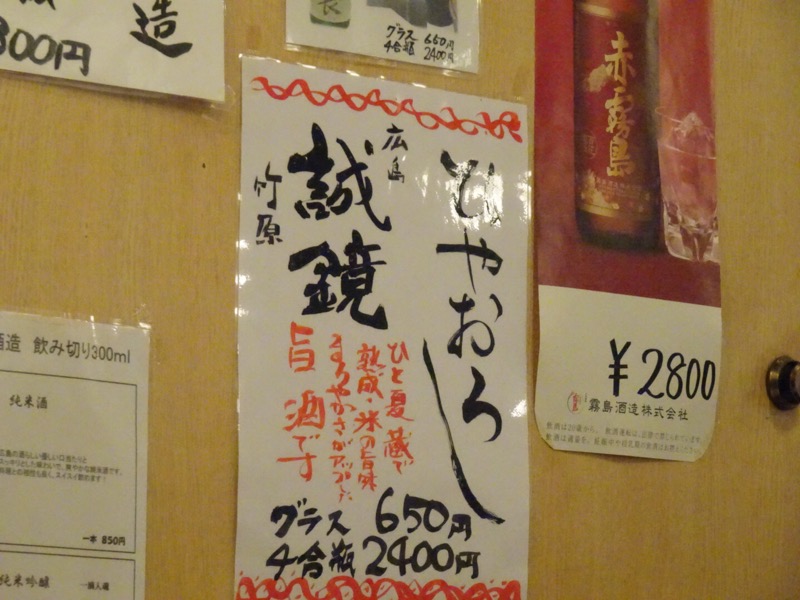 造
800円
グラス 650円
4合瓶 2400円
ひやおろし
広島
誠鏡
竹原
ひと夏蔵で
熟成・米の旨味
まろやかさがアップした
旨酒です
グラス 650円
4合瓶 2400円
赤霧島
¥2800
霧島酒造株式会社
酒造 飲み切り300ml
純米酒
一本 850円
純米吟醸